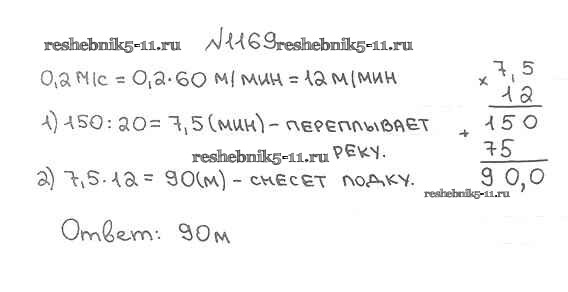 reshebnik5-11.ru №1169 reshebnik5-11.ru
0,2 м/с = 0,2·60 м/мин = 12 м/мин
1) 150:20 = 7,5 (мин) – переплывает
reshebnik5-11.ru реку.
2) 7,5·12 = 90(м) – снесет лодку.
Ответ: 90м
× 7,5
12
+ 150
75
90,0
reshebnik5-11.ru